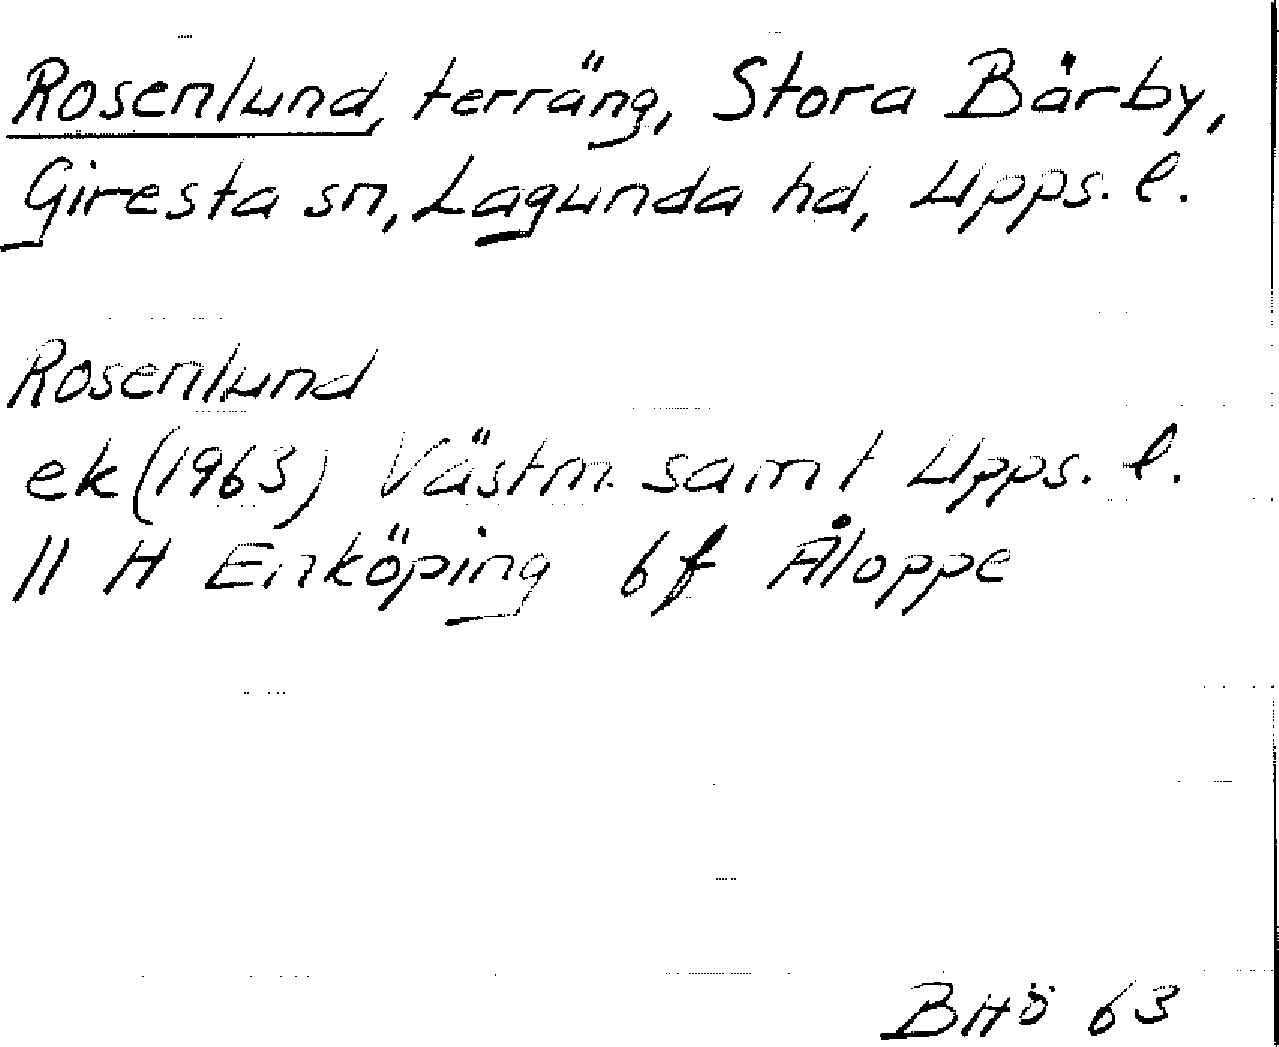 Rosenlund, terräng, Stora Bärby,
Giresta sn, Lagunda hd, Upps. l.
Rosenlund
ek (1963) Västm. samt Upps. l.
11 H Enköping 6f Åloppe
BHÖ 63